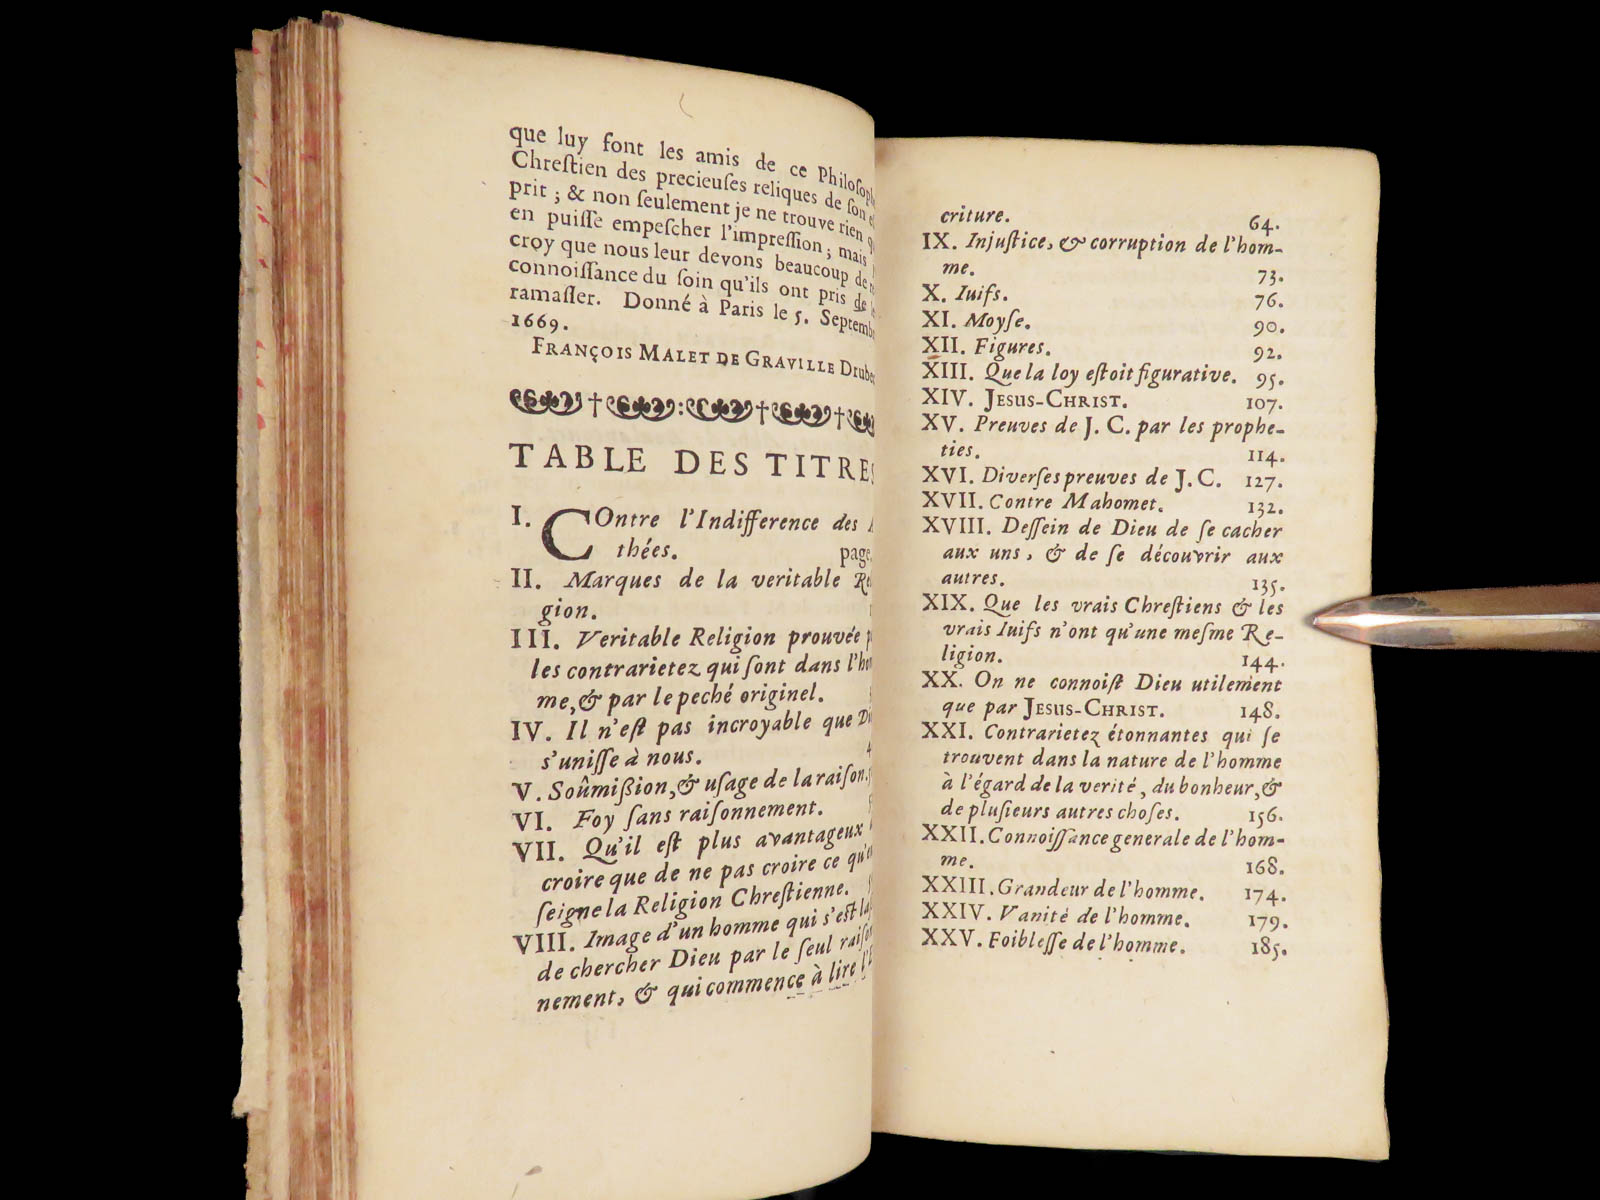 que luy font les amis de ce
Chreſtien des precieuſes reliques de ſon
prit ; & non ſeulement je ne trouve rien
en puiſſe empeſcher l'impreſſion ; mais
croy que nous leur devons beaucoup de
connoiſſance du ſoin qu'ils ont pris de
ramaſſer. Donné à Paris le 5.
1669.
FRANÇOIS MALET DE GRAVILLE
TABLE DES
I. COntre l'Indifference des
thées. page
II. Marques de la veritable
gion.
III. Veritable Religion prouvée
les contrarietez qui ſont dans
me, & par le peché originel.
IV. Il n'eſt pas incroyable que
s'uniſſe à nous.
V. Soûmißion, & uſage de la raiſon.
VI. Foy ſans raiſonnement.
VII. Qu'il eſt plus avantageux
croire que de ne pas croire ce
ſeigne la Religion Chreſtienne.
VIII. Image d'un homme qui s'eſt
de chercher Dieu par le ſeul
nement, & qui commence à lire
criture. 64.
IX. Injuſtice, & corruption de l'hom-
me. 73.
X. Iuifs. 76.
XI. Moyſe. 90.
XII. Figures. 92.
XIII. Que la loy eſtoit figurative. 95.
XIV. JESUS-CHRIST. 107.
XV. Preuves de J. C. par les prophe-
ties. 114.
XVI. Diverſes preuves de J. C. 127.
XVII. Contre Mahomet. 132.
XVIII. Deſſein de Dieu de ſe cacher
aux uns, & de ſe découvrir aux
autres. 135.
XIX. Que les vrais Chreſtiens & les
vrais Iuifs n'ont qu'une meſme Re-
ligion. 144.
XX. On ne connoiſt Dieu utilement
que par JESUS-CHRIST. 148.
XXI. Contrarietez étonnantes qui ſe
trouvent dans la nature de l'homme
à l'égard de la verité, du bonheur, &
de pluſieurs autres choſes. 156.
XXII. Connoiſſance generale de l'hom-
me. 168.
XXIII. Grandeur de l'homme. 174.
XXIV. Vanité de l'homme. 179.
XXV. Foibleſſe de l'homme. 185.